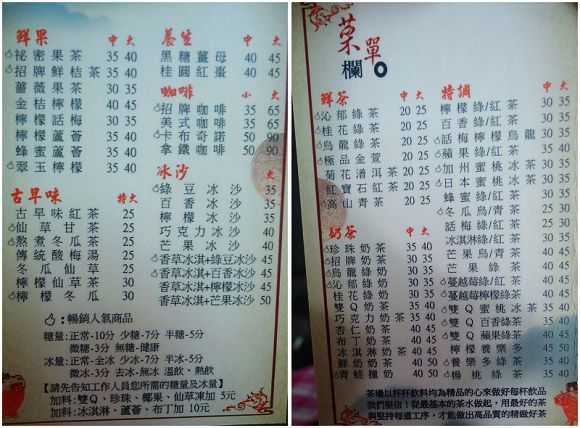 鮮果 中 大
祕密果茶 35 40
招牌鮮桔茶 35 40
薔薇果茶 30 35
金桔檸檬 40 45
檸檬話梅 30 35
檸檬蘆薈 35 40
蜂蜜蘆薈 35 40
翠玉檸檬 35 40
古早味 特大
古早味紅茶 25
仙草甘茶 25
熬煮冬瓜茶 25
傳統酸梅湯 25
冬瓜仙草 25
檸檬仙草茶 30
檸檬冬瓜 30
養生 中 大
黑糖薑母 40 45
桂圓紅棗 40 45
咖啡 小 大
招牌咖啡 35 65
美式咖啡 35 65
卡布奇諾 50 90
拿鐵咖啡 50 90
冰沙 大
綠豆冰沙 35
百香冰沙 35
檸檬冰沙 35
巧克力冰沙 40
芒果冰沙 40
香草冰淇+綠豆冰沙 45
香草冰淇+百香冰沙 45
香草冰淇+檸檬冰沙 45
香草冰淇+芒果冰沙 50
：暢銷人氣商品
糖量:正常-10分 少糖-7分 半糖-5分
微糖-3分 無糖-健康
冰量:正常-全冰 少冰-7分 半冰-5分
微冰-3分 去冰-無冰 溫飲、熱飲
【請先告知工作人員您所需的糖量及冰量】
加料:雙Q、珍珠、椰果、仙草凍加 5元
加料:冰淇淋、蘆薈、布丁加 10元
菜單欄
鮮茶 中 大
沁郁綠茶 20 25
桂花綠茶 20 25
烏龍綠茶 20 25
極品金萱 20 25
菊花潽洱茶 20 25
紅寶石紅茶 20 25
高山青茶 20 25
奶茶 中 大
珍珠奶茶 35 40
招牌奶茶 30 35
烏龍綠奶 30 35
桂花綠奶 30 35
雙Q奶茶 35 40
巧克力奶茶 35 40
杏仁奶茶 35 40
布丁奶茶 40 45
冰淇淋奶茶 40 45
鮮奶奶茶 40 50
青蛙撞奶 40 50
特調 中 大
檸檬綠/紅茶 30 35
百香綠/紅茶 30 35
話梅檸檬烏龍 30 35
蘋果綠/紅茶 30 35
加州蜜桃冰茶 30 35
日本蜜桃冰茶 30 35
蜂蜜綠/紅茶 30 35
冬瓜烏/青茶 25 30
話梅綠/紅茶 25 30
冰淇淋綠/紅茶 30 35
芒果烏/青茶 40 45
芒果綠茶 40 45
蔓越莓綠/紅茶 35 40
蔓越莓檸檬綠茶 35 40
雙Q蜜桃冰茶 35 40
雙Q百香綠茶 35 40
雙Q蘋果綠茶 35 40
檸檬養樂多 45 50
養樂多綠茶 30 35
楊桃綠茶 30 35
茶壜以杯杯飲料均為精品的心來做好每杯飲品
我們堅信！從最基本的茶水做起，用最好的茶
與堅持每道工序，才能做出高品質的精緻好茶